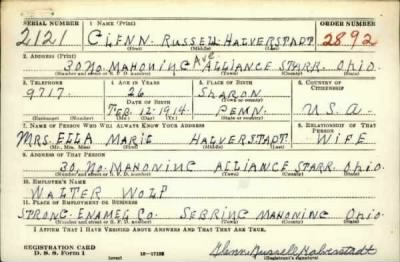 SERIAL NUMBER 1. NAME (Print) ORDER NUMBER
2121 GLENN RUSSELL HALVERSTADT 2892
(First) (Middle) (Last)
2. ADDRESS (Print)
30 NO. MAHONING AVE ALLIANCE STARK OHIO
(Number and street or R. F. D. number) (Town) (County) (State)
3. TELEPHONE 4. AGE IN YEARS 5. PLACE OF BIRTH 6. COUNTRY OF CITIZENSHIP
9717 26 SHARON
DATE OF BIRTH (Town or county)
FEB. 12-1914 PENN. U.S.A
(Exchange) (Number) (Mo.) (Day) (Yr.) (State or country)
7. NAME OF PERSON WHO WILL ALWAYS KNOW YOUR ADDRESS 8. RELATIONSHIP OF THAT PERSON
MRS. ELLA MARIE HALVERSTADT WIFE
(Mr., Mrs., Miss) (First) (Middle) (Last)
9. ADDRESS OF THAT PERSON
30, NO. MAHONING ALLIANCE STARR. Ohio
(Number and street or R. F. D. number) (Town) (County) (State)
10. EMPLOYER'S NAME
WALTER WOLF
11. PLACE OF EMPLOYMENT OR BUSINESS
STRONG-ENAMEL CO. SEBRING MAHONING Ohio
(Number and street or R. F. D. number) (Town) (County) (State)
I AFFIRM THAT I HAVE VERIFIED ABOVE ANSWERS AND THAT THEY ARE TRUE.
REGISTRATION CARD
D. S. S. Form 1 (over) Glenn Russell Halverstadt
(Registrant's signature)